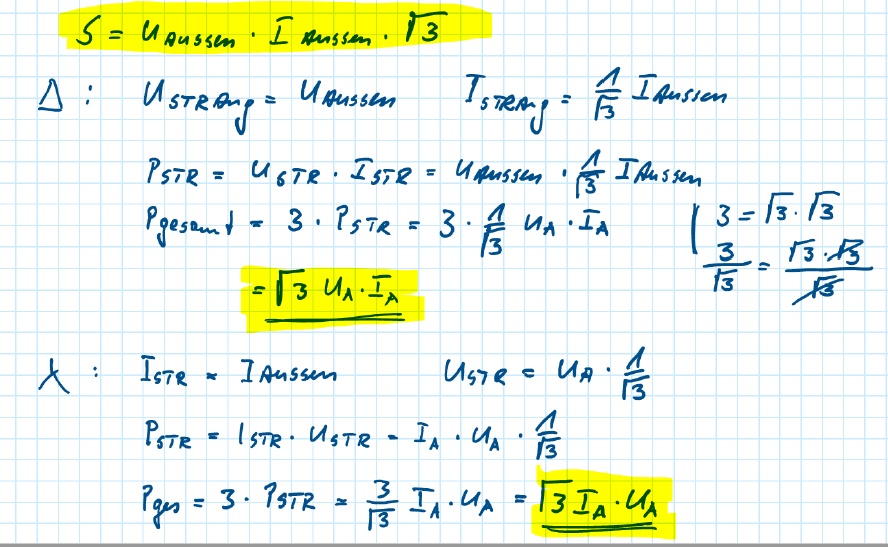 S = U AUSSEN · I AUSSEN · √3
Δ : U STRANG = U AUSSEN I STRANG = 1/√3 I AUSSEN
P STR = U STR · I STR = U AUSSEN · 1/√3 I AUSSEN
P gesamt = 3 · P STR = 3 · 1/√3 U A · I A
3 = √3 · √3
3/√3 = √3 · √3/√3
= √3 U A · I A
⅄ : I STR = I AUSSEN U STR = U A · 1/√3
P STR = I STR · U STR = I A · U A · 1/√3
P ges = 3 · P STR = 3/√3 I A · U A = √3 I A · U A